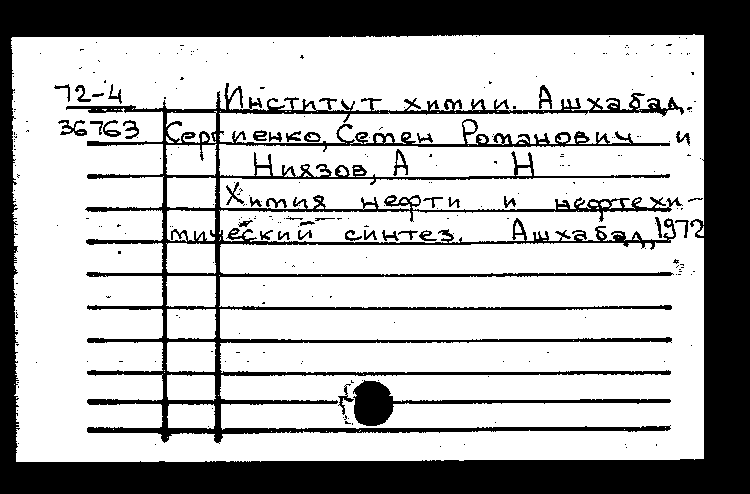 72-4 Институт химии. Ашхабад.
36763 Сергиенко, Семен Романович и
Ниязов, А Н
Химия нефти и нефтехи-
мический синтез. Ашхабад, 1972